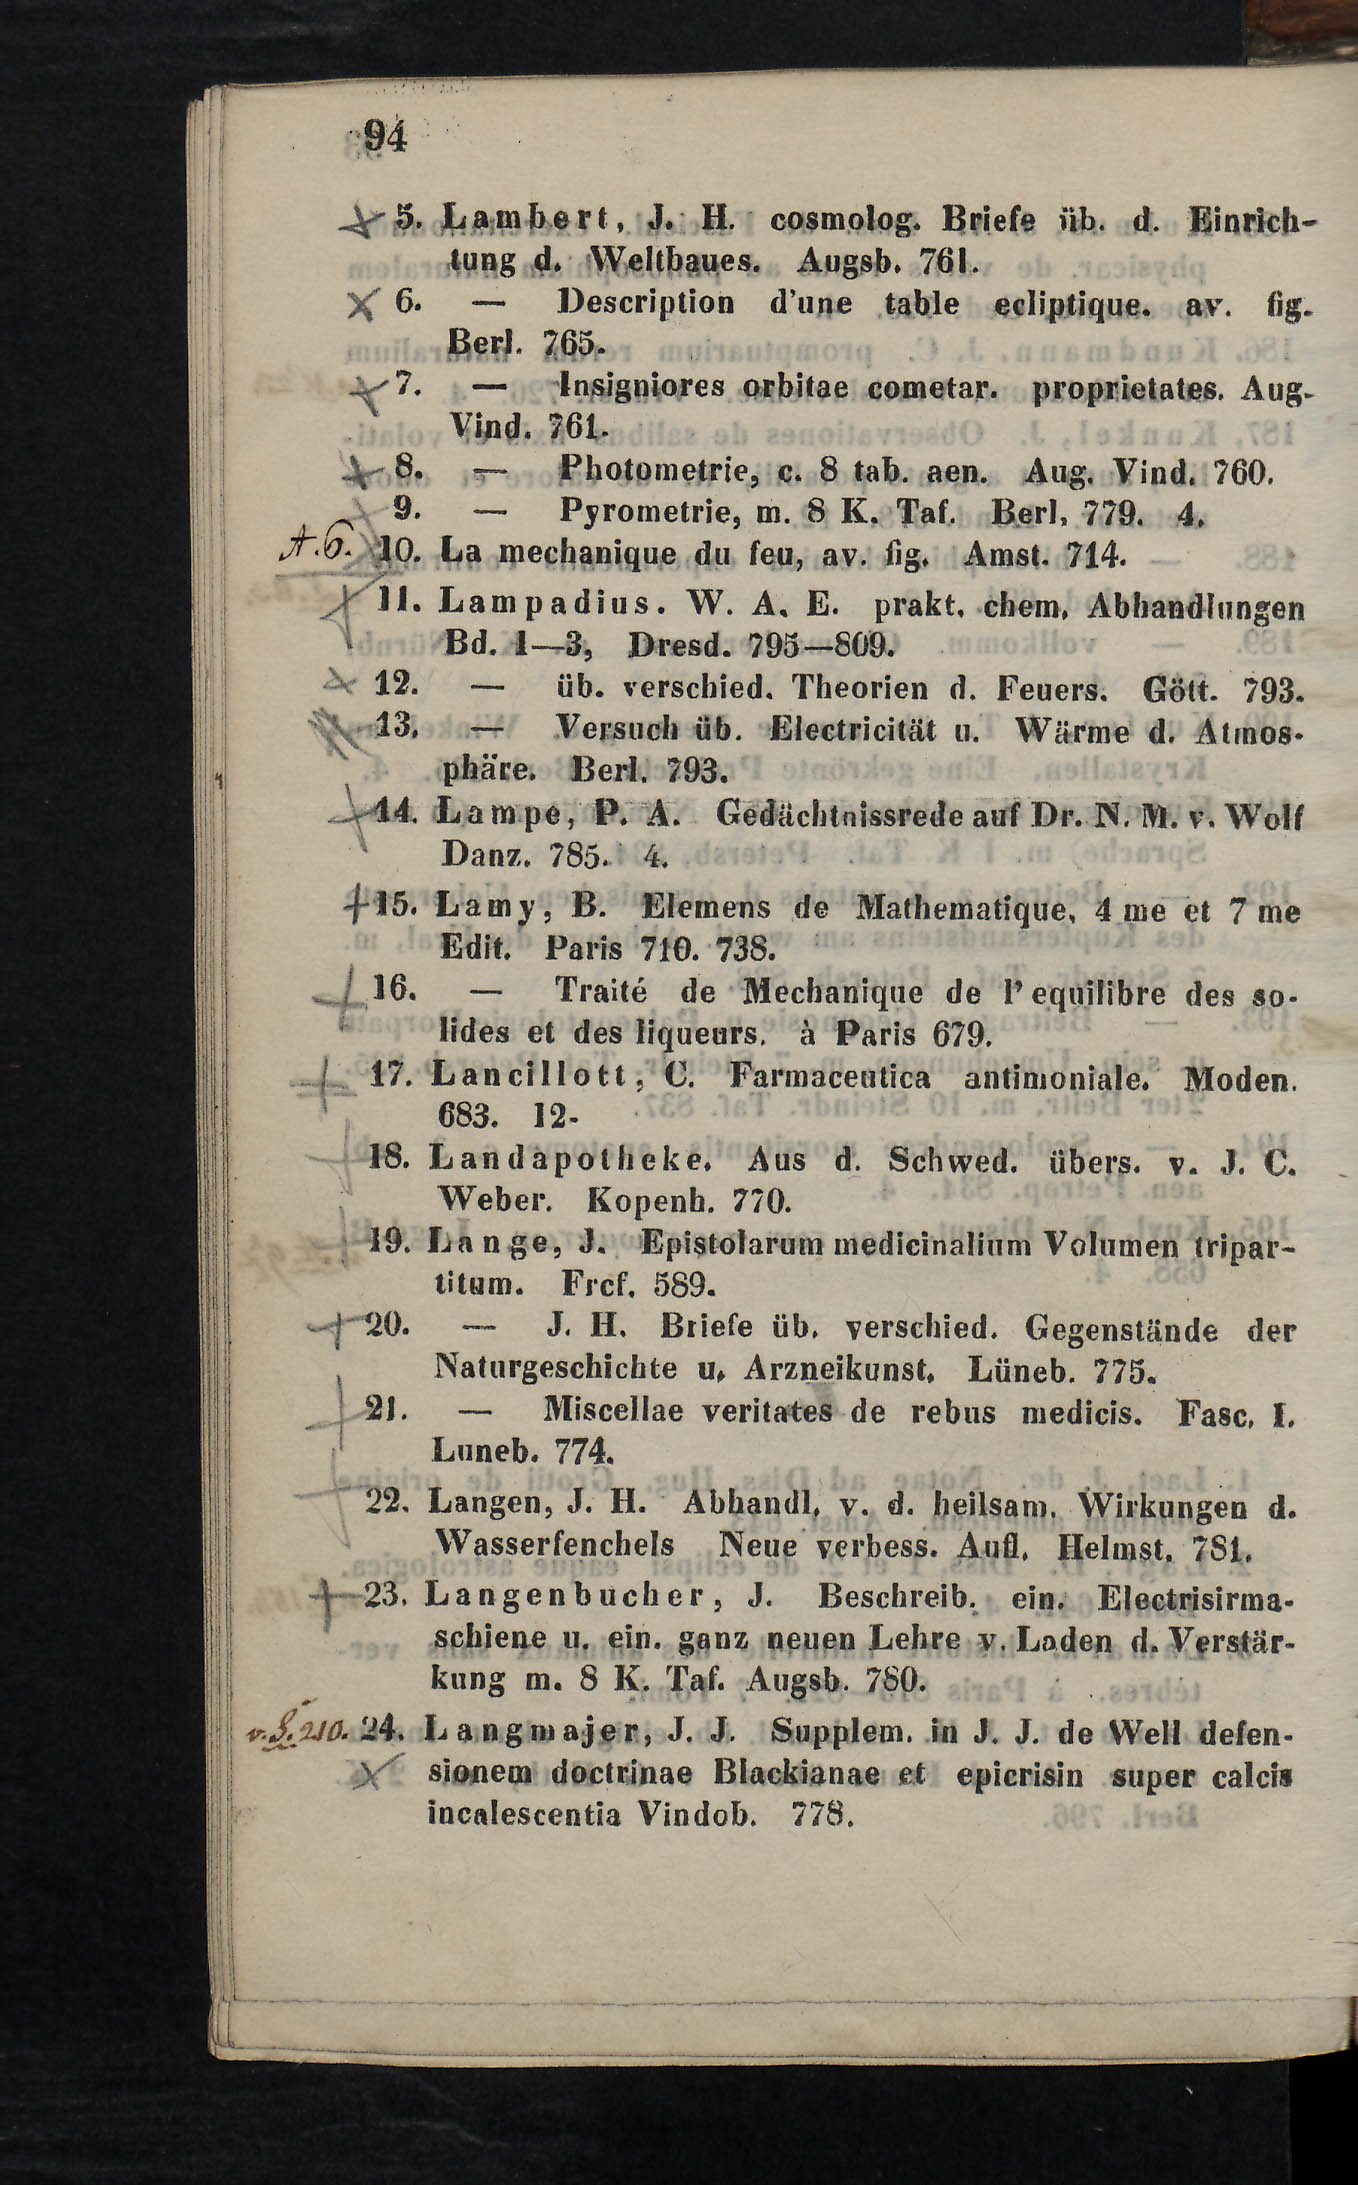 94
5. Lambert, J. H. cosmolog. Briefe üb. d. Einrich-
tung d. Weltbaues. Augsb. 761.
6. — Description d'une table ecliptique. av. fig.
Berl. 765.
7. — Insigniores orbitae cometar. proprietates. Aug.
Vind. 761.
8. — Photometrie, c. 8 tab. aen. Aug. Vind. 760.
9. — Pyrometrie, m. 8 K. Taf. Berl. 779. 4.
A. 6. 10. La mechanique du feu, av. fig. Amst. 714.
11. Lampadius. W. A. E. prakt. chem. Abhandlungen
Bd. 1—3, Dresd. 795—809.
12. — üb. verschied. Theorien d. Feuers. Gött. 793.
13. — Versuch üb. Electricität u. Wärme d. Atmos-
phäre. Berl. 793.
14. Lampe, P. A. Gedächtnissrede auf Dr. N. M. v. Wolf
Danz. 785. 4.
15. Lamy, B. Elemens de Mathematique, 4 me et 7 me
Edit. Paris 710. 738.
16. — Traité de Mechanique de l' equilibre des so-
lides et des liqueurs. à Paris 679.
17. Lancillott, C. Farmaceutica antimoniale. Moden.
683. 12-
18. Landapotheke. Aus d. Schwed. übers. v. J. C.
Weber. Kopenh. 770.
19. Lange, J. Epistolarum medicinalium Volumen tripar-
titum. Frcf. 589.
20. — J. H. Briefe üb. verschied. Gegenstände der
Naturgeschichte u. Arzneikunst. Lüneb. 775.
21. — Miscellae veritates de rebus medicis. Fasc. I.
Luneb. 774.
22. Langen, J. H. Abhandl. v. d. heilsam. Wirkungen d.
Wasserfenchels Neue verbess. Aufl. Helmst. 781.
23. Langenbucher, J. Beschreib. ein. Electrisirma-
schiene u. ein. ganz neuen Lehre v. Laden d. Verstär-
kung m. 8 K. Taf. Augsb. 780.
v. S. 210. 24. Langmajer, J. J. Supplem. in J. J. de Well defen-
sionem doctrinae Blackianae et epicrisin super calcis
incalescentia Vindob. 778.